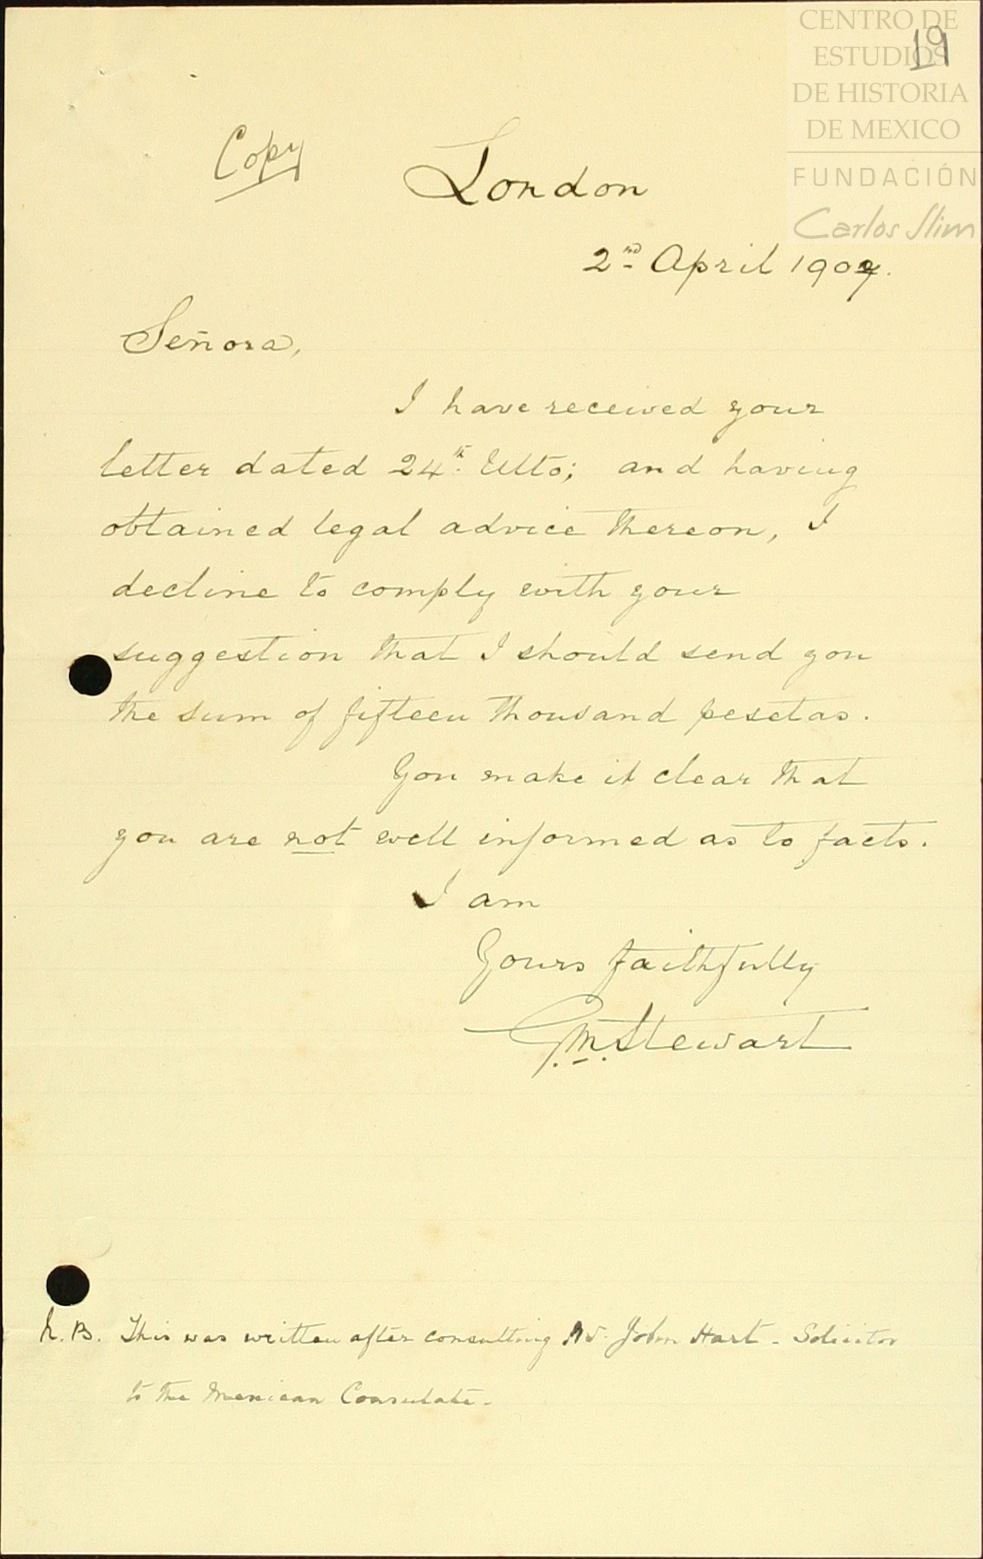 CENTRO DE
ESTUDIOS
DE HISTORIA
DE MEXICO
FUNDACIÓN
Carlos Slim
19
Copy
London
2nd April 1907.
Señora,
I have received your
letter dated 24th Ulto; and having
obtained legal advice thereon, I
decline to comply with your
suggestion that I should send you
the sum of fifteen thousand pesetas.
You make it clear that
you are not well informed as to facts.
I am
Yours faithfully
G.M. Stewart
N.B. This was written after consulting Mr. John Hart - Solicitor
to the Mexican Consulate -